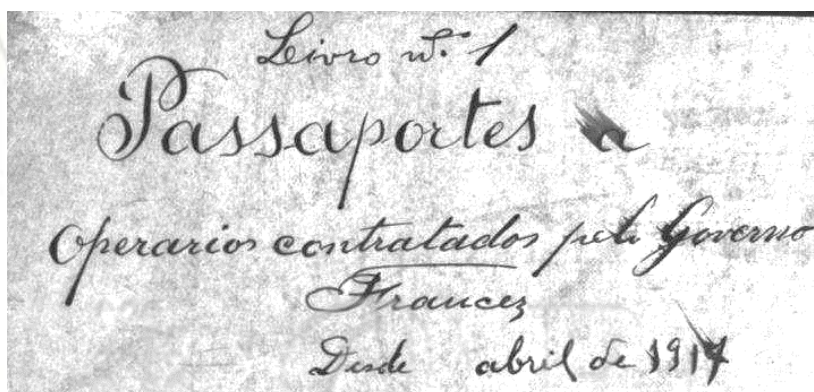 Livro nº. 1
Passaportes a
Operarios contratados pelo Governo
Francez
Desde abril de 1917